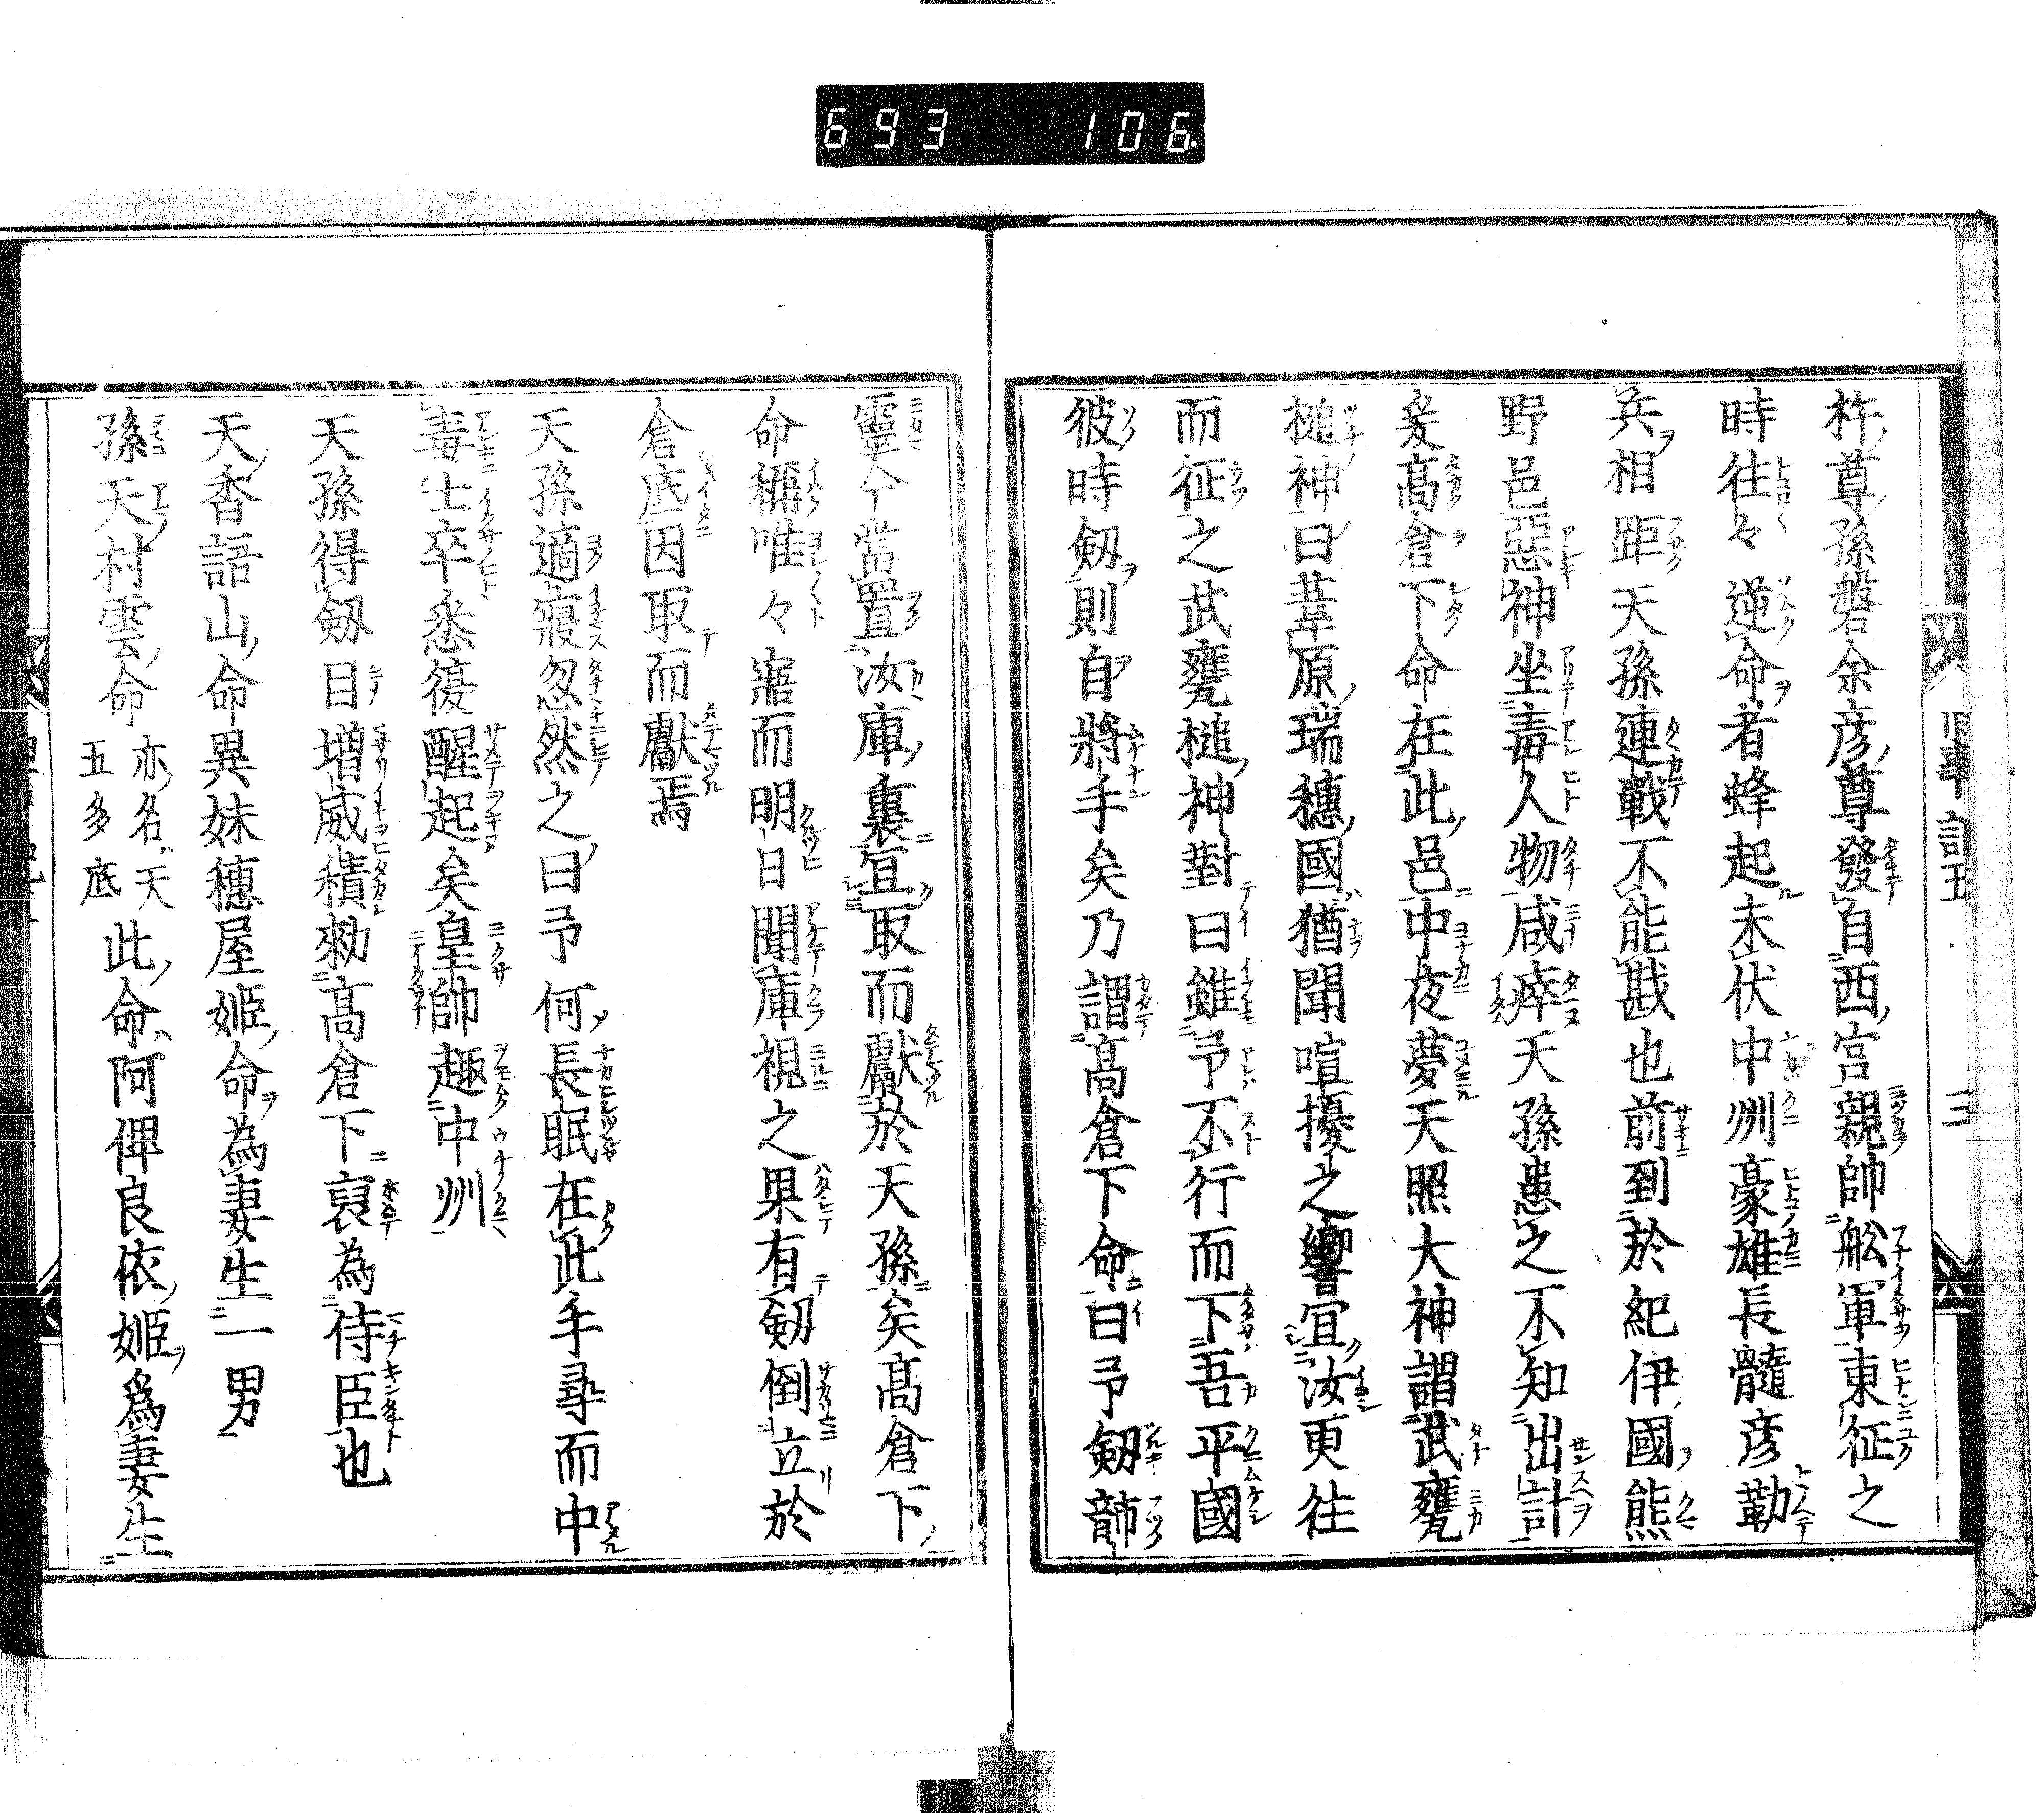 693 106
旧事記五 三
杵尊孫磐余彦尊發自西宮親帥舩軍東征之
時徃々逆命者蜂起未伏中州豪雄長髓彦勒
兵相距天孫連戰不能戡也前到於紀伊國熊
野邑惡神坐毒人物咸瘁天孫患之不知出計
爰髙倉下命在此邑中夜夢天照大神謂武甕
槌神曰葦原瑞穗國猶聞喧擾之響宜汝更徃
而征之武甕槌神對曰雖予不行而下吾平國
彼時劔則自將手矣乃謂髙倉下命曰予劔韴
靈今當置汝庫裏宜取而獻於天孫矣髙倉下
命稱唯々寤而明日聞庫視之果有劔倒立於
倉底因取而獻焉
天孫適寢忽然之曰予何長眠在此手尋而中
毒士卒悉復醒起矣皇帥趣中州
天孫得劔目増威積勑髙倉下裒為侍臣也
天香語山命異妹穗屋姬命為妻生一男
孫天村雲命 亦名天五多底 此命阿俾良依姬爲妻生